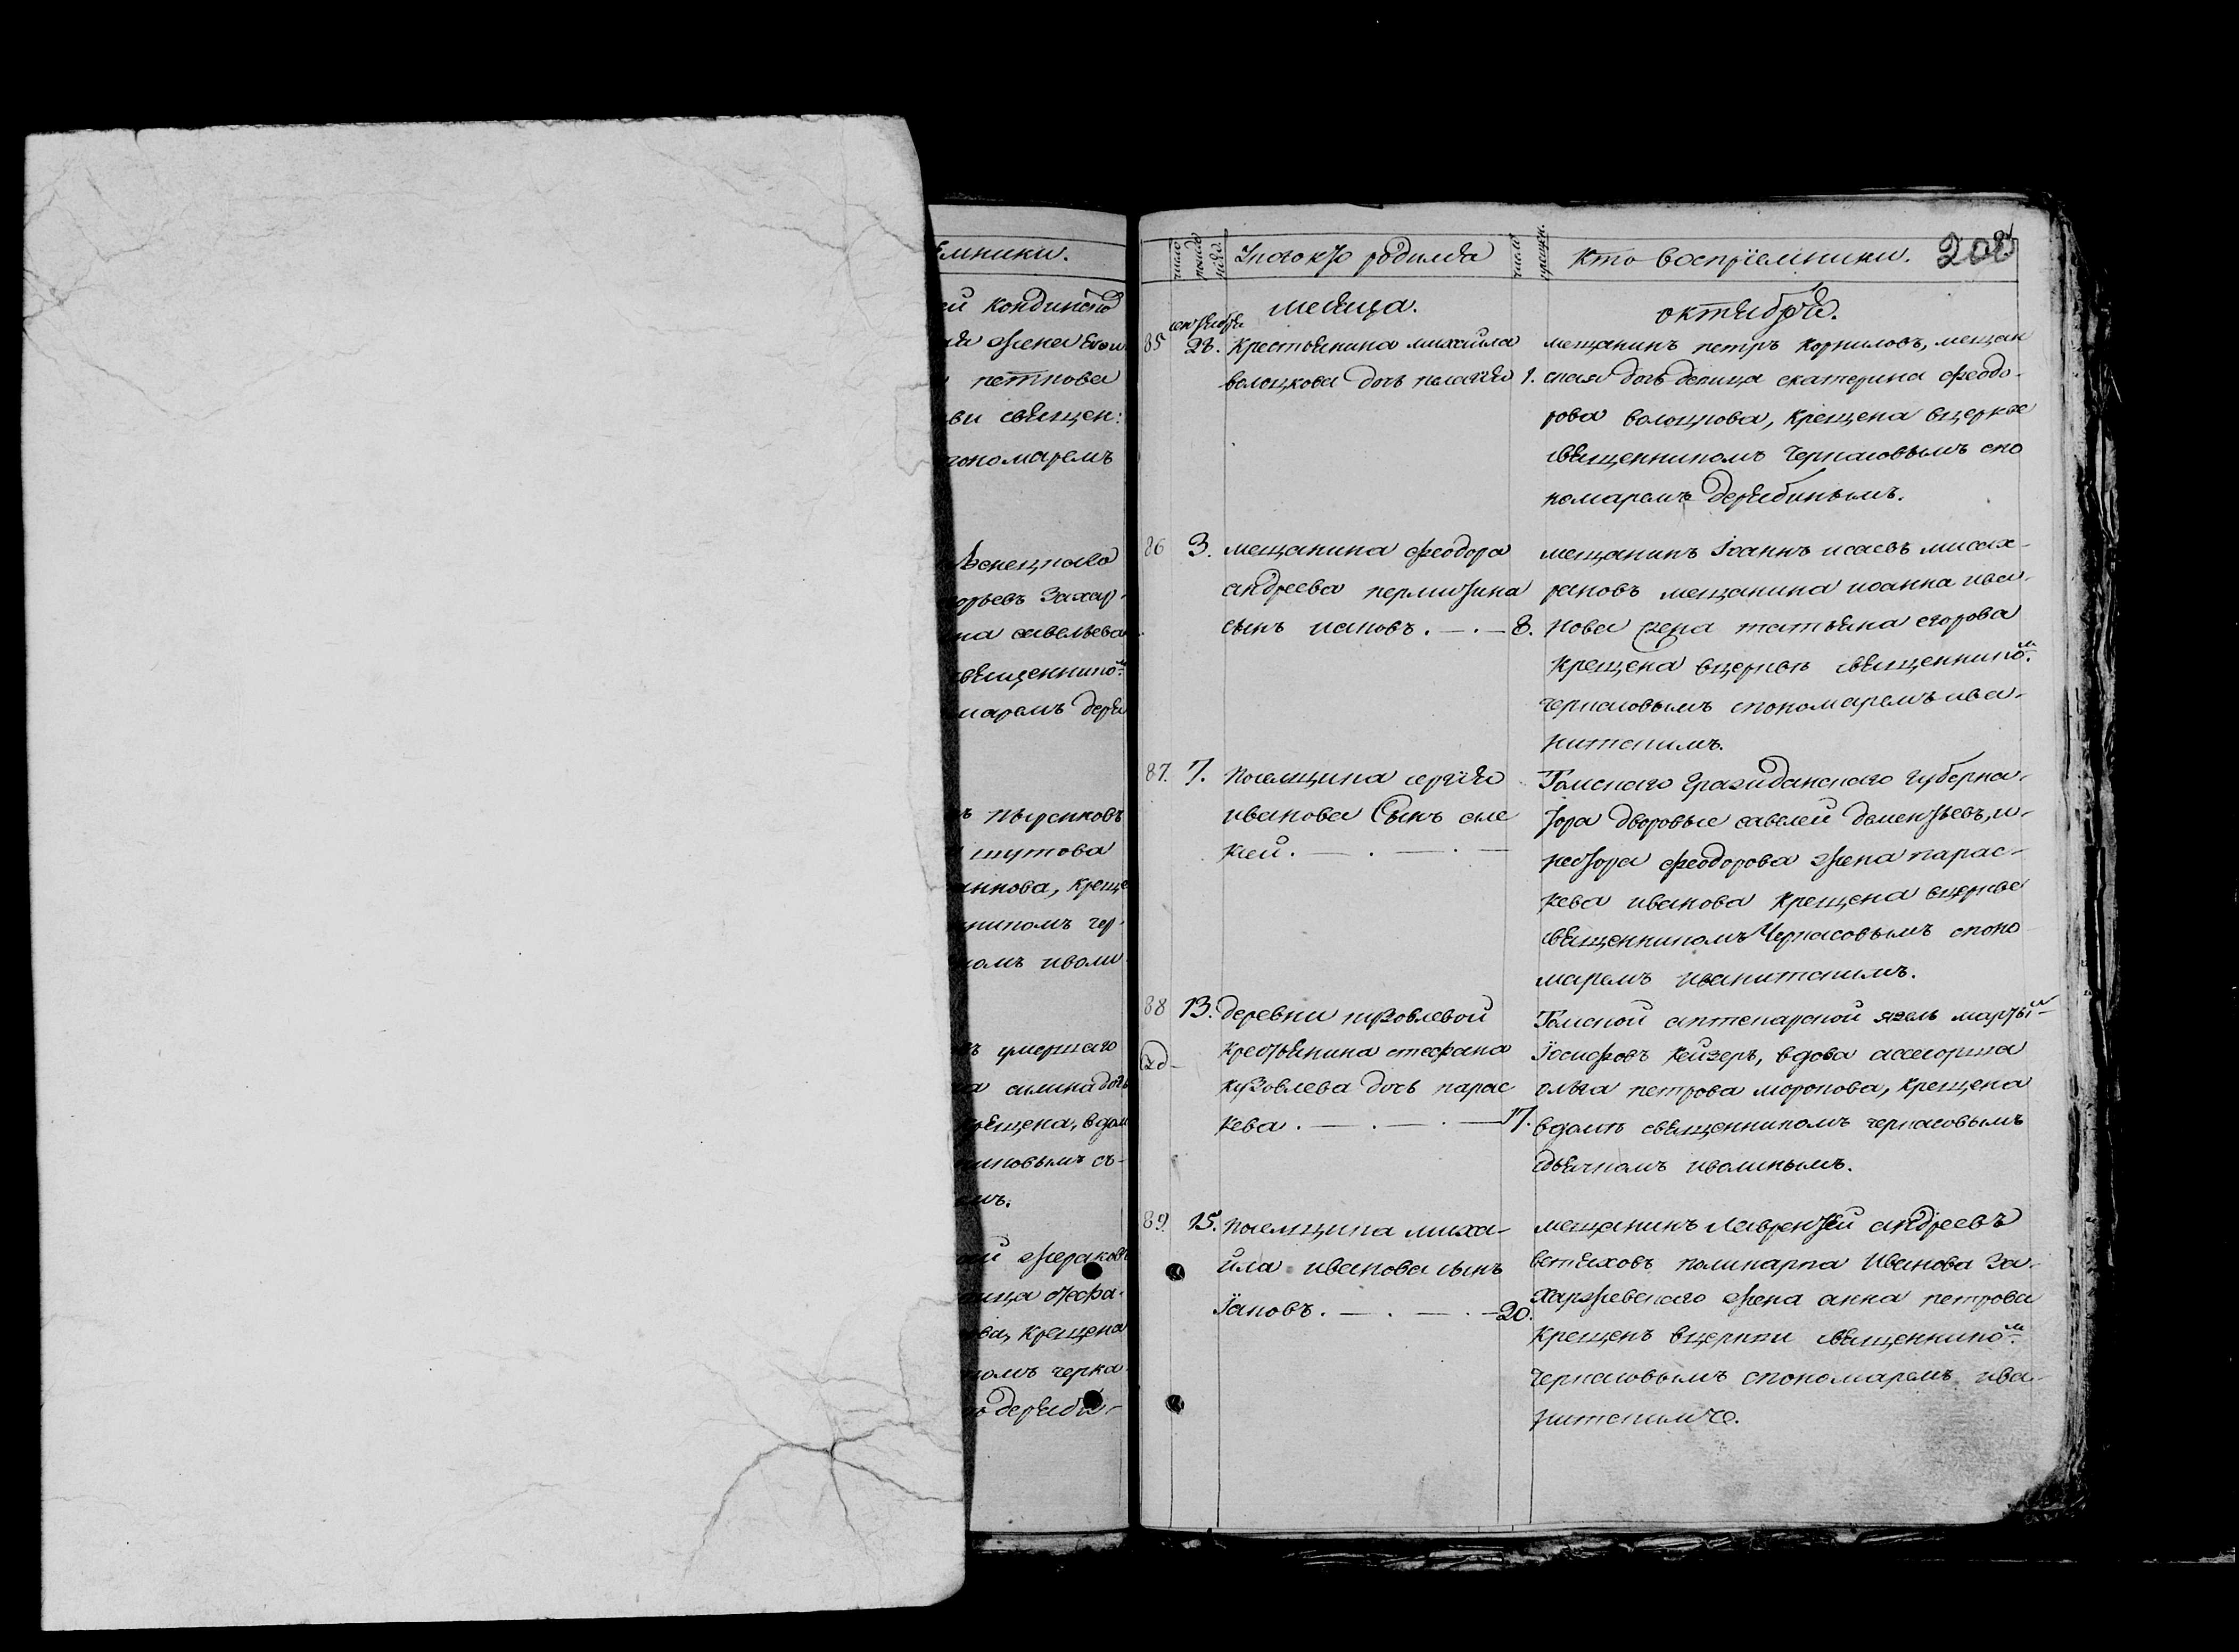 емники.
ей Кондинско
жена
петкова
ви священ:
пономаремъ
Венецкаго
горьевъ Захар-
на савельева
священникомъ
маремъ деря
ъ пыренковъ
шутова
аннова, креще
никомъ чер-
комъ иволи
ъ умершаго
а силина дочь
крещена, в дом
иновымъ съ-
имъ.
ей жераковъ
вица стефа-
ва, крещена
комъ черка
ъ деряби-
число рожде нія.
У кого кто родился
число крещен.
Кто восприемники.
208
месяца.
октября.
сентября
85 28. Крестьянина михайла
волоцкова дочь пелагия 1.
мещанинъ петръ корниловъ, мещан
ская дочь девица екатерина феодо-
рова волоцкова, крещена в церкве
священникомъ Черкасовымъ с по
номаремъ Дерябинымъ.
86 3. мещанина феодора
андреева пермитина
сынъ иаковъ. 8.
мещанинъ іоаннъ исаевъ
рановъ мещанина иоанна ива-
нова жена татьяна егорова
крещена в церкве священникомъ
черкасовымъ с пономаремъ ива-
нитскимъ.
87. 7. Поселщика сергия
иванова Сынъ але
ксей.
Томскаго Гражданскаго Губерна-
тора дворовые савелей дементьевъ, и-
нестора феодорова жена парас-
кева иванова крещена в церкве
священникомъ Черкасовымъ с поно
маремъ иванитскимъ.
88 13. деревни кузовлевой
крестьянина стефана
кузовлева дочь парас
кева. 17.
Томской аптекарской
Іосифовъ Кейзеръ, вдова ассесорша
ольга петрова моронова, крещена
в доме священникомъ черкасовымъ
с дьячкомъ иволинымъ.
89. 15. Поселщика миха-
йла иванова сынъ
Іаковъ. 20.
мещанинъ лаврентей андреевъ
ветяховъ поликарпа Иванова За-
харжевскаго жена анна петрова
крещенъ в церкви священникомъ
черкасовымъ с пономаремъ ива-
нитскимъ.